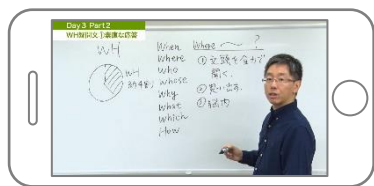 Day3 Part2
WH疑問文①素直な応答
WH
WH
When
Where
Who
whose
Why
What
which
How
Where 〜 ?
① 文頭を全力で
聞く.
②
③